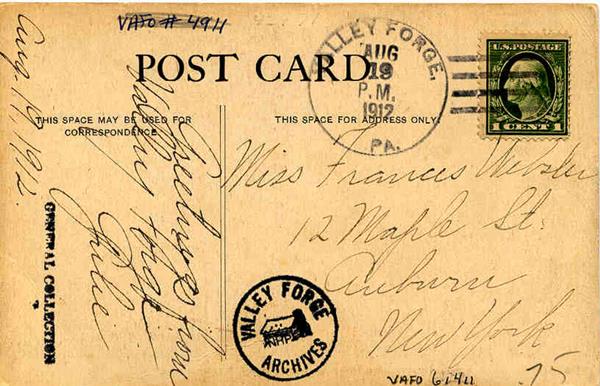 VAFO # 4911
POST CARD
VALLEY FORGE,
AUG
19
P.M.
1912
PA.
U.S. POSTAGE
1 CENT 1
THIS SPACE MAY BE USED FOR
CORRESPONDENCE.
THIS SPACE FOR ADDRESS ONLY.
Aug 19, 1912.
Greetings from
Valley Forge
Julie
Miss Frances Webster
12 Maple St.
Auburn
New York
GENERAL COLLECTION
VALLEY FORGE
NHP
ARCHIVES
VAFO 61411
75